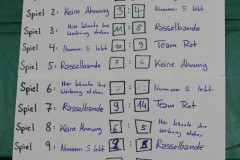 Spiel 2: Keine Ahnung 3 4 Nummer 5 lebt
Spiel 3: Hier könnte ihre Werbung stehen 11 8 Rasselbande
Spiel 4: Nummer 5 lebt 10 9 Team Rot
Spiel 5: Rasselbande 7 6 Keine Ahnung
Spiel 6: Hier könnte ihre Werbung stehen Nummer 5 lebt
Spiel 7: Rasselbande 9 14 Team Rot
Spiel 8: Keine Ahnung 6 5 Hier könnte ihre Werbung stehen
Spiel 9: Nummer 5 lebt 8 Rasselbande